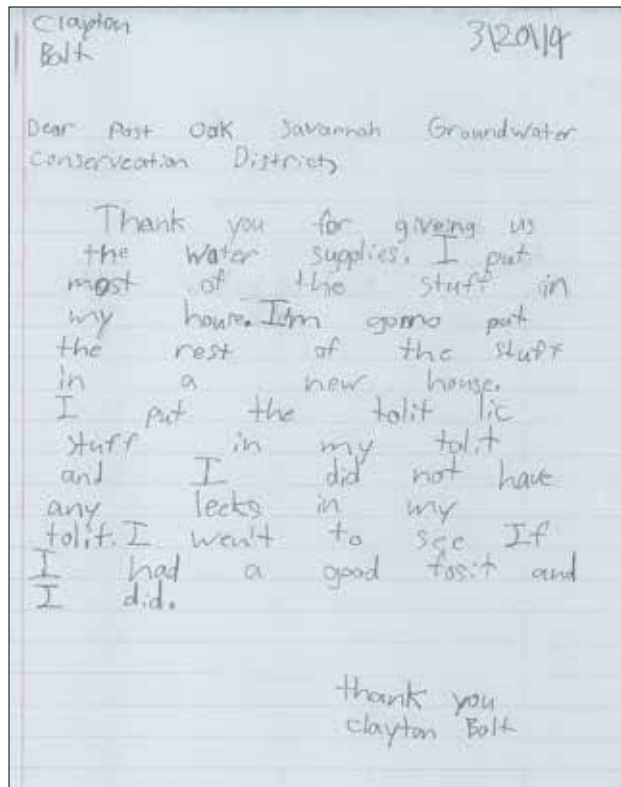 Clayton
Bolt
3\20\19
Dear Post Oak Savannah Groundwater
Conserveation District,
Thank you for giveing us
the water supplies. I put
most of the stuff in
my house. I'm gonno put
the rest of the stuff
in a new house.
I put the tolit lic
stuff in my tolit
and I did not have
any leeks in my
tolit. I wen't to see If
I had a good fosit and
I did.
thank you
Clayton Bolt